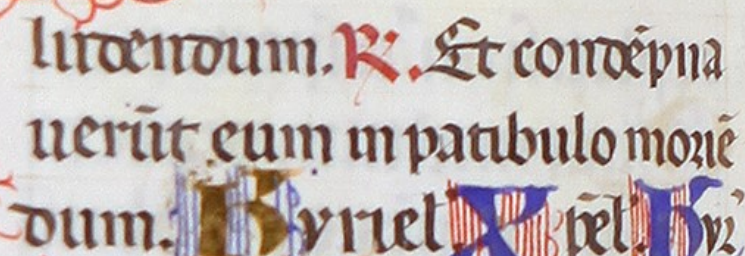 ludendum. R. Et condēpna
uerūt eum in patibulo moriē
dum. Kyriel. Xpēl. Kyr̄